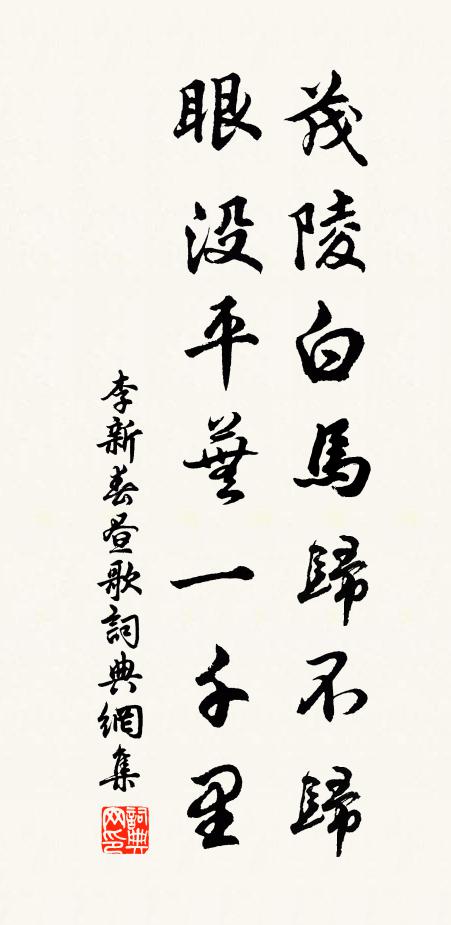 茂陵白馬歸不歸
眼没平蕪一千里
李新春昼歌詞典網集
詞典
网印